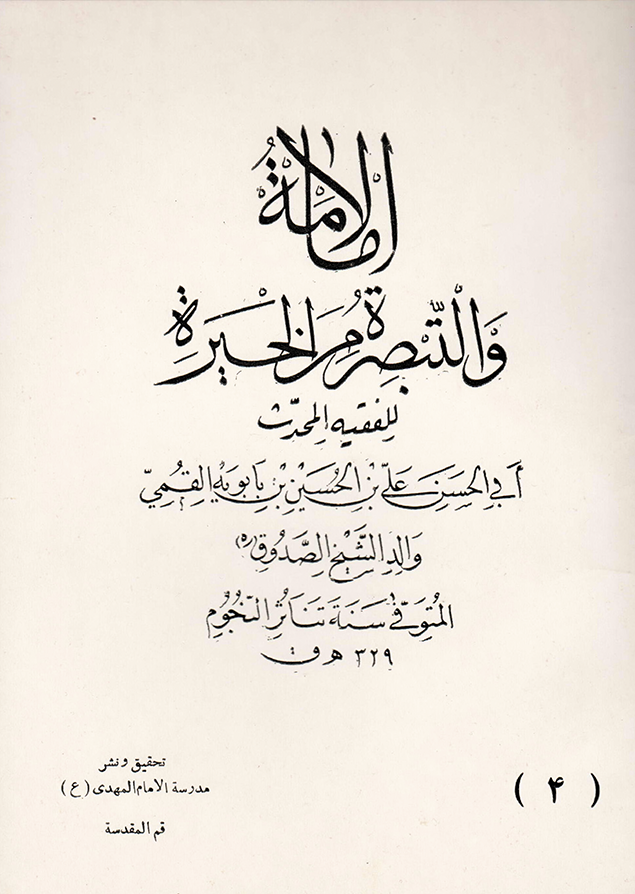 الإمامة
وَالتَّبصِرة مِنَ الحَيرَة
للفقيه المحدّث
أَبي الحسَن عَليّ بْن الحُسَيْن بْن بَابويْه القِمُّيّ
وَالدِ الشَّيْخ الصَّدُوق (ره)
المُتوَفّى سَنَة تَنَاثُر النّجُوُم
٣٢٩ هـ ق
تحقيق و نشر
مدرسة الامام المهدى (ع)
قم المقدسة
( ۴ )